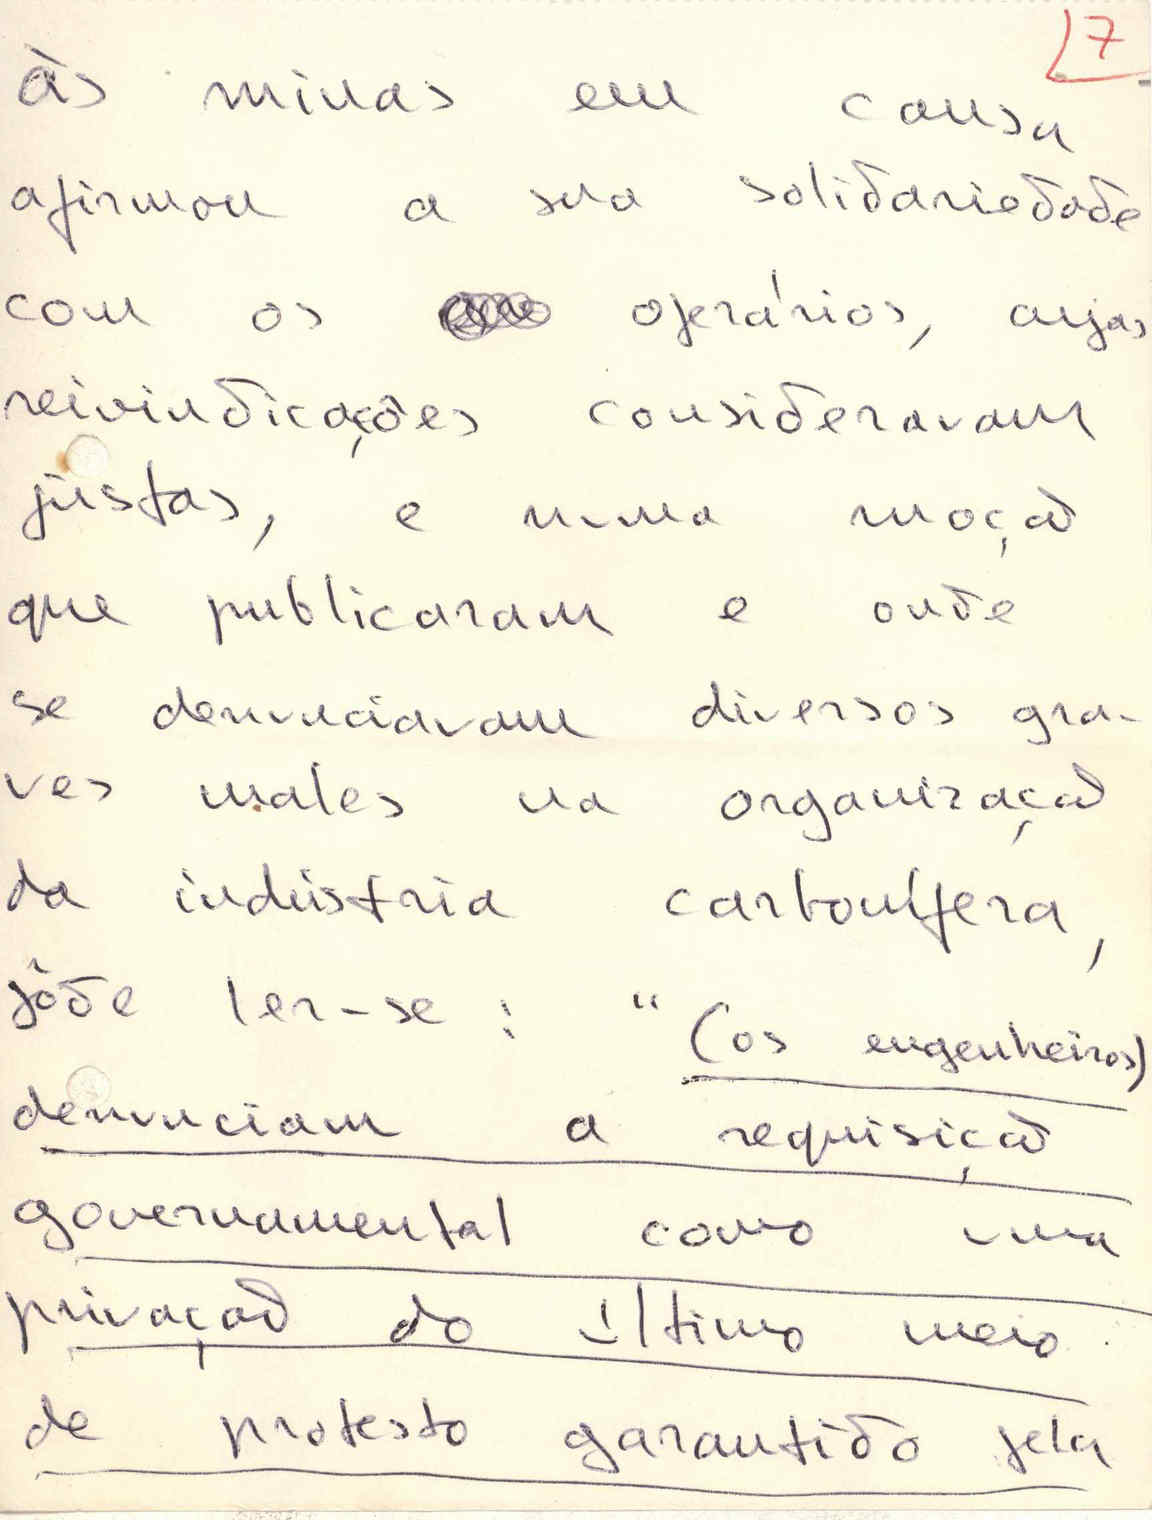 7
às minas em causa
afirmou a sua solidariedade
com os operários, cujas
reivindicações consideravam
justas, e numa moção
que publicaram e onde
se denunciavam diversos gra-
ves males na organização
da indústria carbonífera,
pôde ler-se: "(os engenheiros)
denunciam a requisição
governamental como uma
privação do último meio
de protesto garantido pela